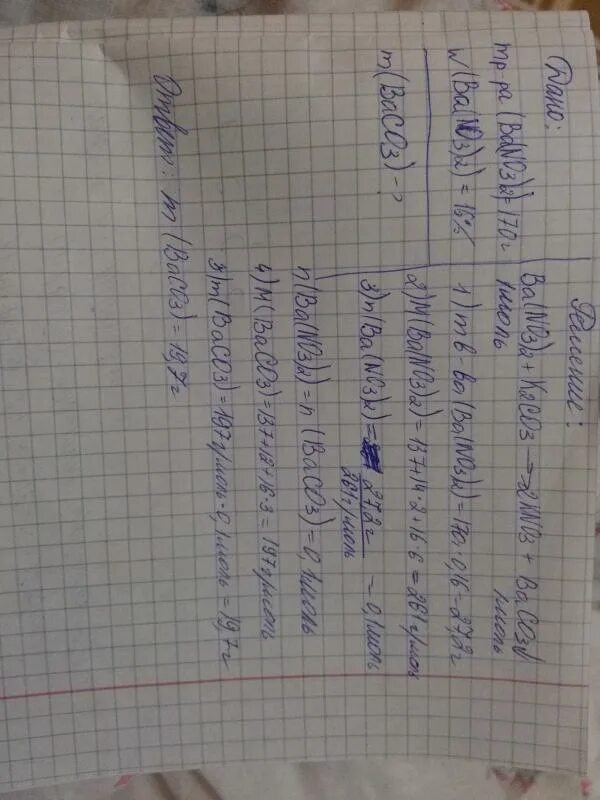 Дано:
mр-ра (Ba(NO3)2) = 170г
w (Ba(NO3)2) = 16%
m(BaCO3) - ?
Решение:
Ba(NO3)2 + K2CO3 → 2KNO3 + BaCO3↓
1моль 1моль
1) m в-ва (Ba(NO3)2) = 170 · 0,16 = 27,2г
2) M (Ba(NO3)2) = 137+14·2+16·6 = 261 г/моль
3) n (Ba(NO3)2) = 27,2г / 261г/моль = 0,1моль
n (Ba(NO3)2) = n (BaCO3) = 0,1моль
4) M (BaCO3) = 137+12+16·3 = 197г/моль
5) m (BaCO3) = 197г/моль · 0,1моль = 19,7г
Ответ: m (BaCO3) = 19,7г